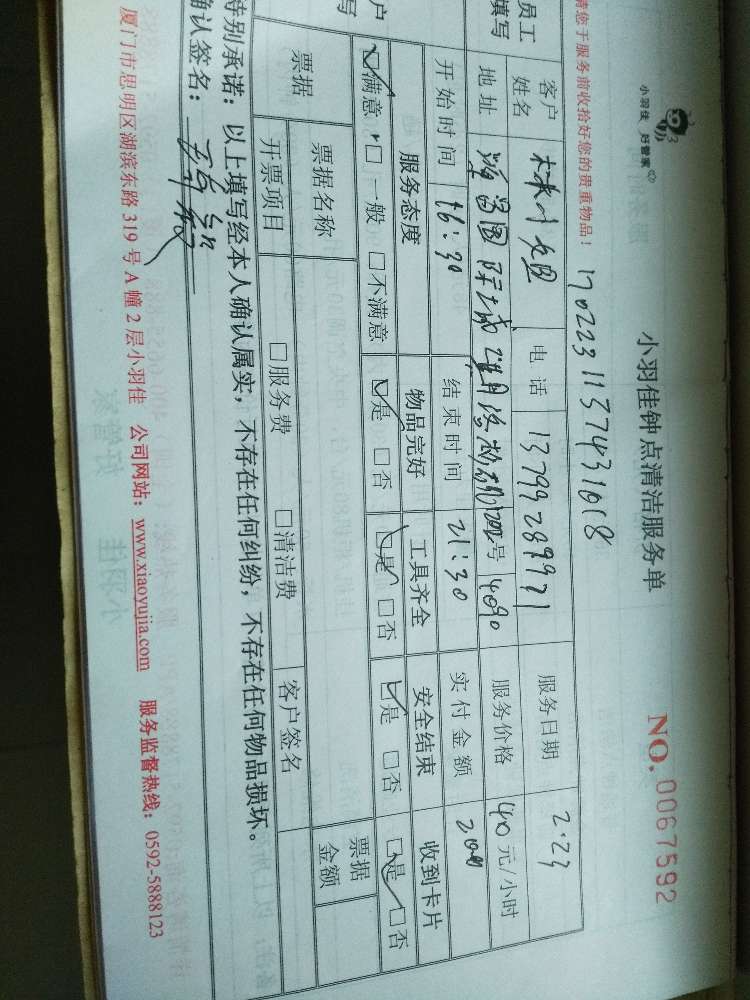 小羽佳 好管家
小羽佳钟点清洁服务单
NO. 0067592
请您于服务前收拾好您的贵重物品！ 1702231137431618
员工 填写
客户姓名 电话 13799289971 服务日期 2.23
地址 国际城 号 409 服务价格 40元/小时
开始时间 16:30 结束时间 21:30 实付金额 200
户 写
服务态度 物品完好 工具齐全 安全结束 收到卡片
满意 一般 不满意 是 否 是 否 是 否 是 否
票据 票据名称 票据金额
开票项目 服务费 清洁费 客户签名
特别承诺：以上填写经本人确认属实，不存在任何纠纷，不存在任何物品损坏。
确认签名：
厦门市思明区湖滨东路319号A幢2层小羽佳 公司网站：www.xiaoyujia.com 服务监督热线：0592-5888123